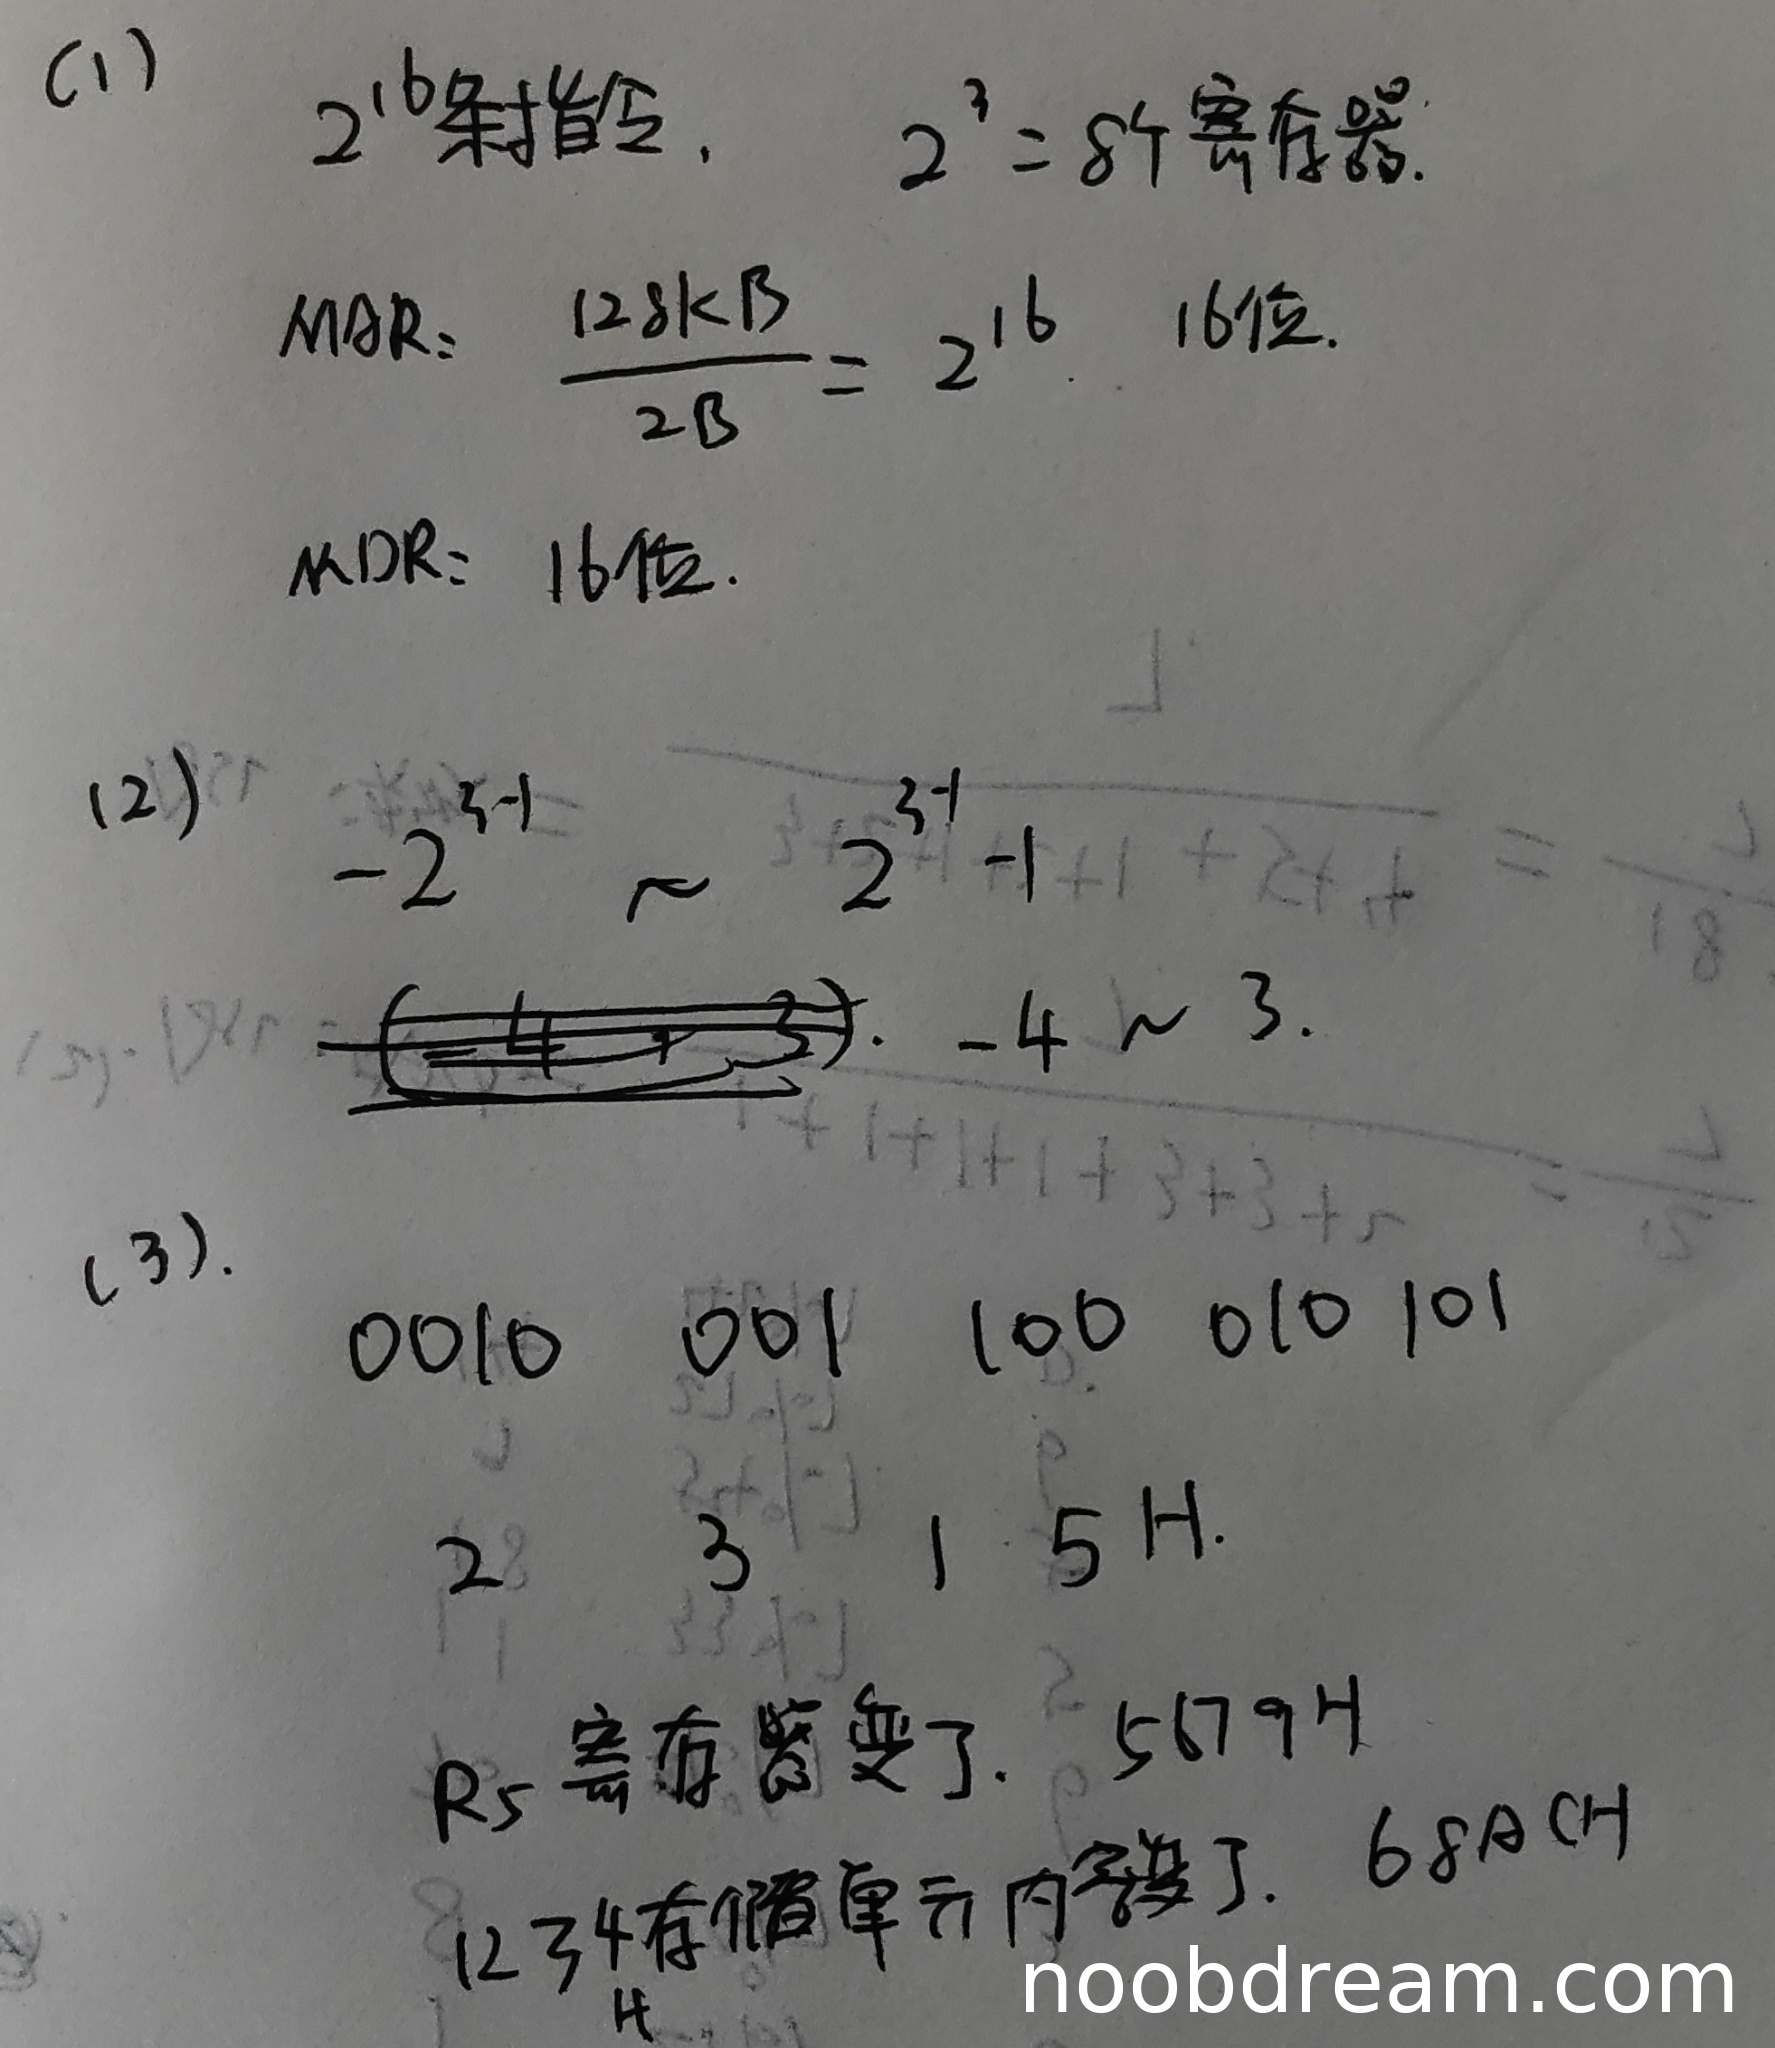 (1)
2^16条指令. 2^3 = 8个寄存器.
MAR: 128KB / 2B = 2^16. 16位.
MDR: 16位.
(2)
-2^3-1 ~ 2^3-1 -1
-4 ~ 3.
(3).
0010 001 100 010 101
2 3 1 5 H.
R5寄存器变了. 5679H
1234H存储单元内容变了. 68ACH
noobdream.com